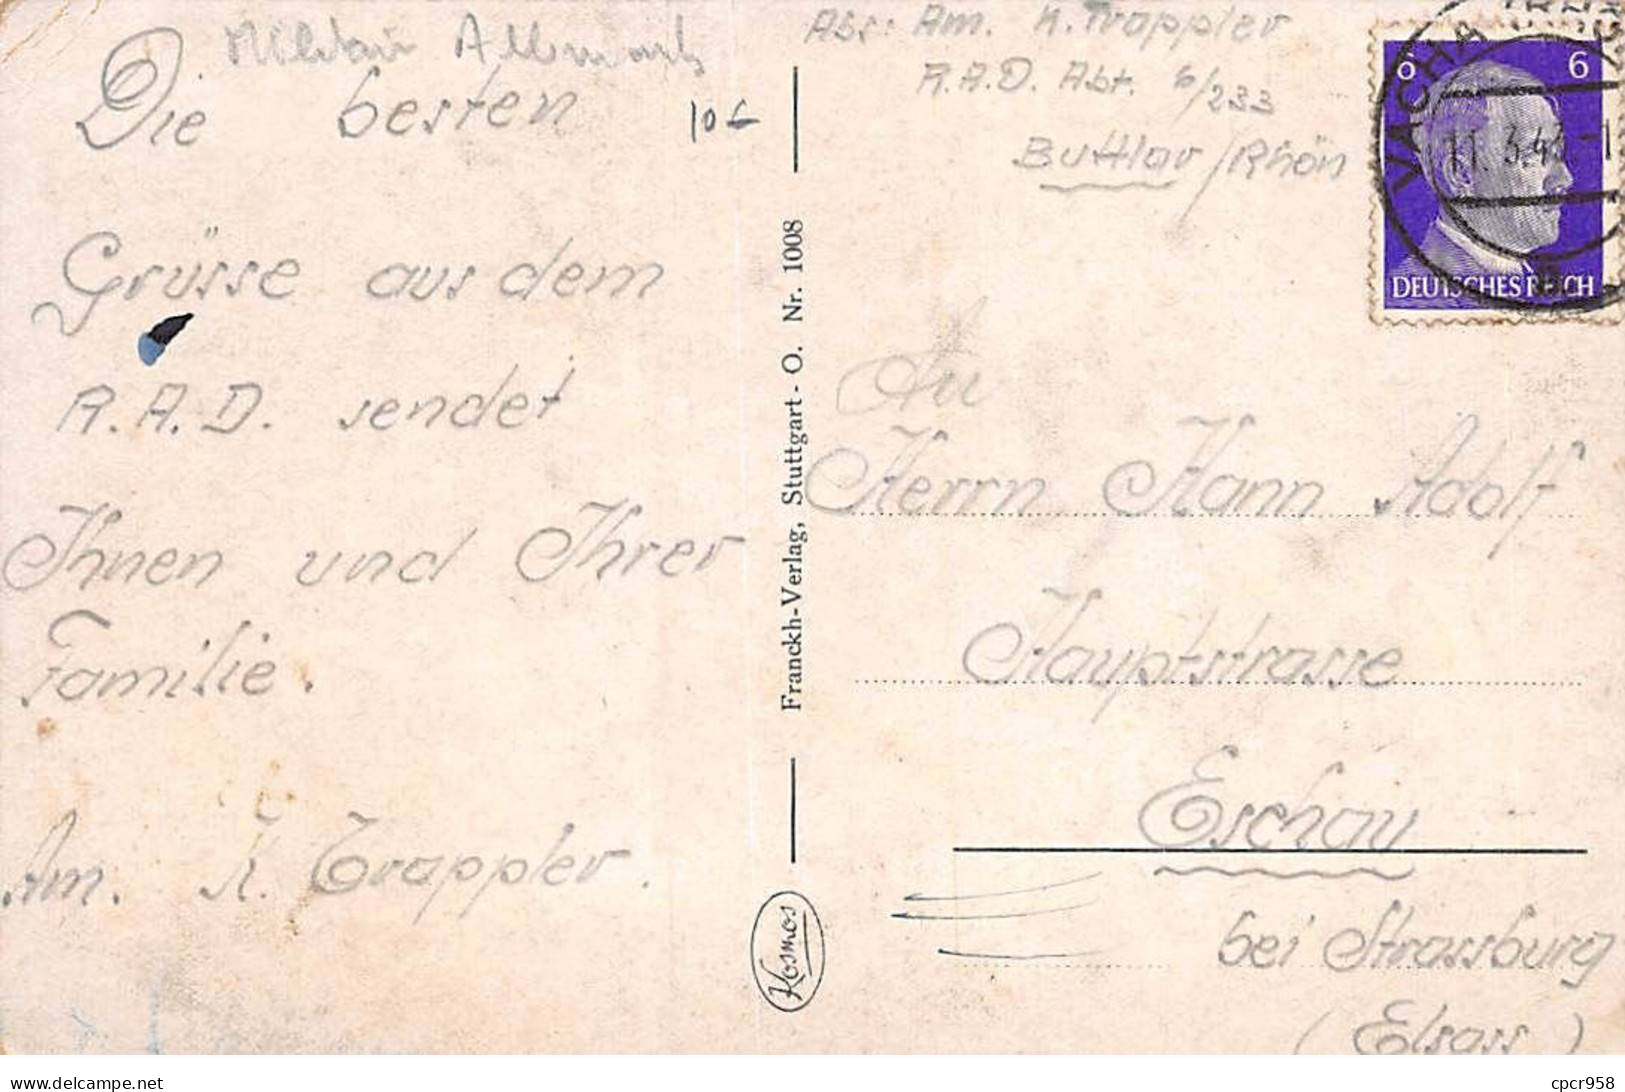 Die besten
10 €
Grüsse aus dem
R.A.D. sendet
Ihnen und Ihrer
Familie.
Am. K. Trappler.
Franckh-Verlag, Stuttgart-O. Nr. 1008
Kosmos
Abs: Am. K. Trappler
R.A.D. Abt. 6/233
Buttlar/Rhön
6 6
DEUTSCHES REICH
VACHA
11. 3.43
An
Herrn Hann Adolf
Hauptstrasse
Eschau
bei Strassburg
(Elsass)
cpcr958